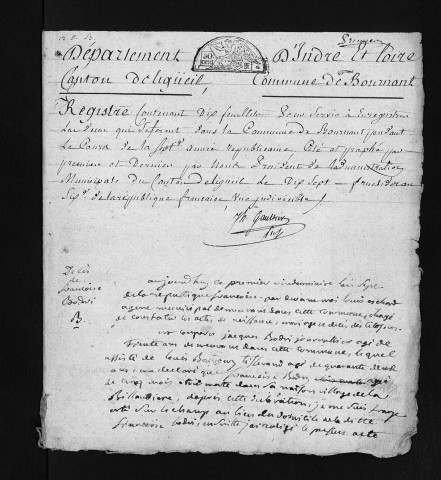 Département D'Indre et Loire
Canton de ligueil, Commune de Bournant
Registre Contenant Dix feuillets Pour Servir à Enregistrer
Les Deces qui Seferont dans la Commune de Bournant pendant
Le Cours de la Sept.e année republicaine Coté et paraphé par
premiere et Derniere par Nous President de l'administration
Municipale du Canton de ligueil Le Dix Sept fructidor an
Six.e de la republique francaise, Une indivisible /
Décès
de
francoise
Bodri
B
aujourd'huy ce premier vendemiaire l'an Sept
de la republique francaise par devant moi Louis
agent municipal de Bournant dans cette Commune, chargé
de constater les actes de naissance, mariage et décès des Citoyens
est comparu jacques Bodri journallier agé de
trente ans demeurant dans cette commune, lequel
assisté de Louis tisserand agé de quarante deux
ans, m'a declaré que francoise Bodri agé
de cinq mois est morte dans Sa maison village de la
Billaudiere, d'apres cette declaration, je me Suis transp
orté Sur le champ au lieu du domicile de la ditte
francoise Bodri, ensuitte j'ai redigé le present acte